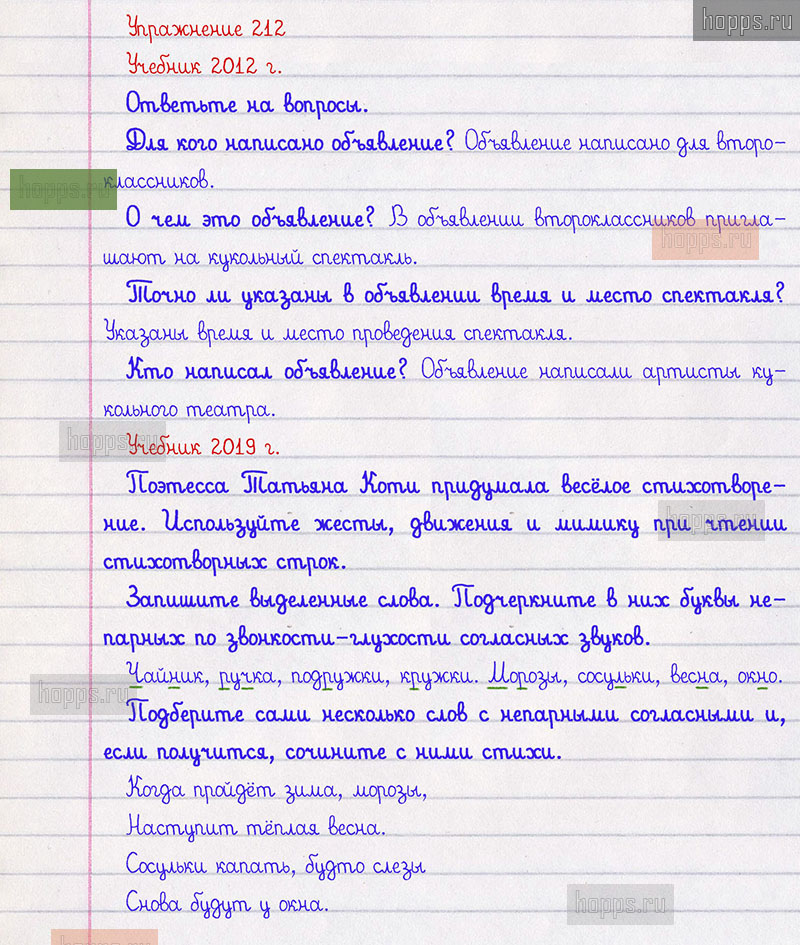 hopps.ru
Упражнение 212
Учебник 2012 г.
Ответьте на вопросы.
Для кого написано объявление? Объявление написано для второ-
hopps.ru
классников.
О чем это объявление? В объявлении второклассников пригла-
hopps.ru
шают на кукольный спектакль.
Точно ли указаны в объявлении время и место спектакля?
Указаны время и место проведения спектакля.
Кто написал объявление? Объявление написали артисты ку-
кольного театра.
hopps.ru
Учебник 2019 г.
Поэтесса Татьяна Коти придумала весёлое стихотворе-
ние. Используйте жесты, движения и мимику при чтении
hopps.ru
стихотворных строк.
Запишите выделенные слова. Подчеркните в них буквы не-
парных по звонкости-глухости согласных звуков.
Чайник, ручка, подружки, кружки. Морозы, сосульки, весна, окно.
hopps.ru
Подберите сами несколько слов с непарными согласными и,
если получится, сочините с ними стихи.
Когда пройдёт зима, морозы,
Наступит тёплая весна.
Сосульки капать, будто слезы
Снова будут у окна.
hopps.ru
hopps.ru